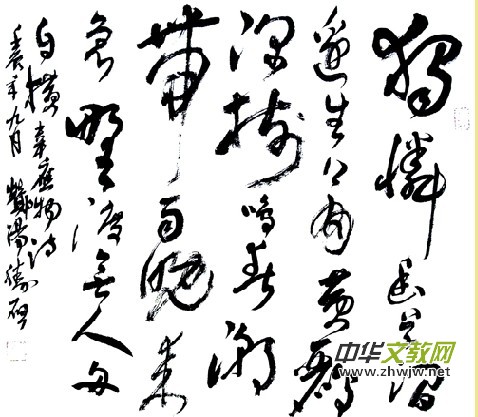 獨憐幽草澗
邊生上有黄鸝
深樹鳴春潮
帶雨晚來
急野渡無人舟
自横 韋應物詩
九月
中华文教网
www.zhwjw.net